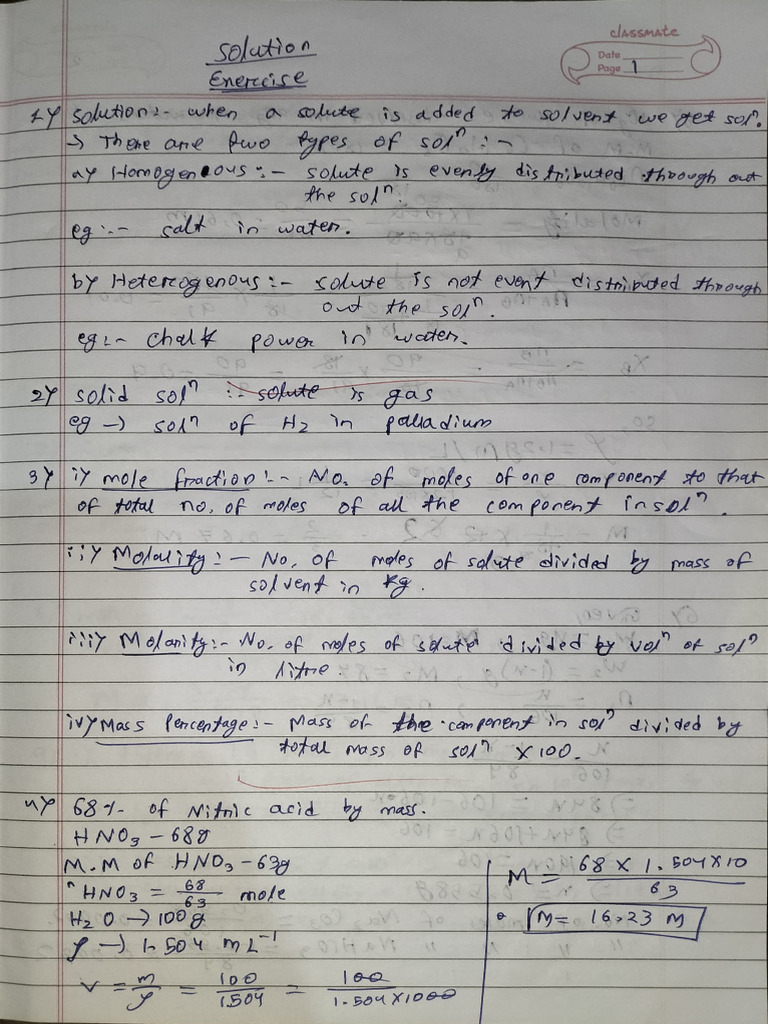 classmate
Date
Page 1
Solution
Exercise
1) Solution:- when a solute is added to solvent we get solⁿ.
→ There are two types of solⁿ :-
a) Homogenous :- solute is evenly distributed through out
the solⁿ.
eg :- salt in water.
b) Heterogenous :- solute is not event distributed through
out the solⁿ.
eg :- chalk power in water.
2) solid solⁿ :- solute is gas
eg → solⁿ of H₂ in palladium
3) i) mole fraction :- No. of moles of one component to that
of total no. of moles of all the component in solⁿ.
ii) Molality :- No. of moles of solute divided by mass of
solvent in kg.
iii) Molarity :- No. of moles of solute divided by volⁿ of solⁿ
in litre
iv) Mass Percentage :- Mass of the component in solⁿ divided by
total mass of solⁿ × 100.
4) 68% of Nitric acid by mass.
HNO₃ - 68g
M.M of HNO₃ - 63g
ⁿHNO₃ = 68/63 mole
H₂O → 100g
ρ → 1.504 mL⁻¹
v = m/ρ = 100/1.504 = 100/1.504×1000
M = 68 × 1.504 × 10/63
M = 16.23 M